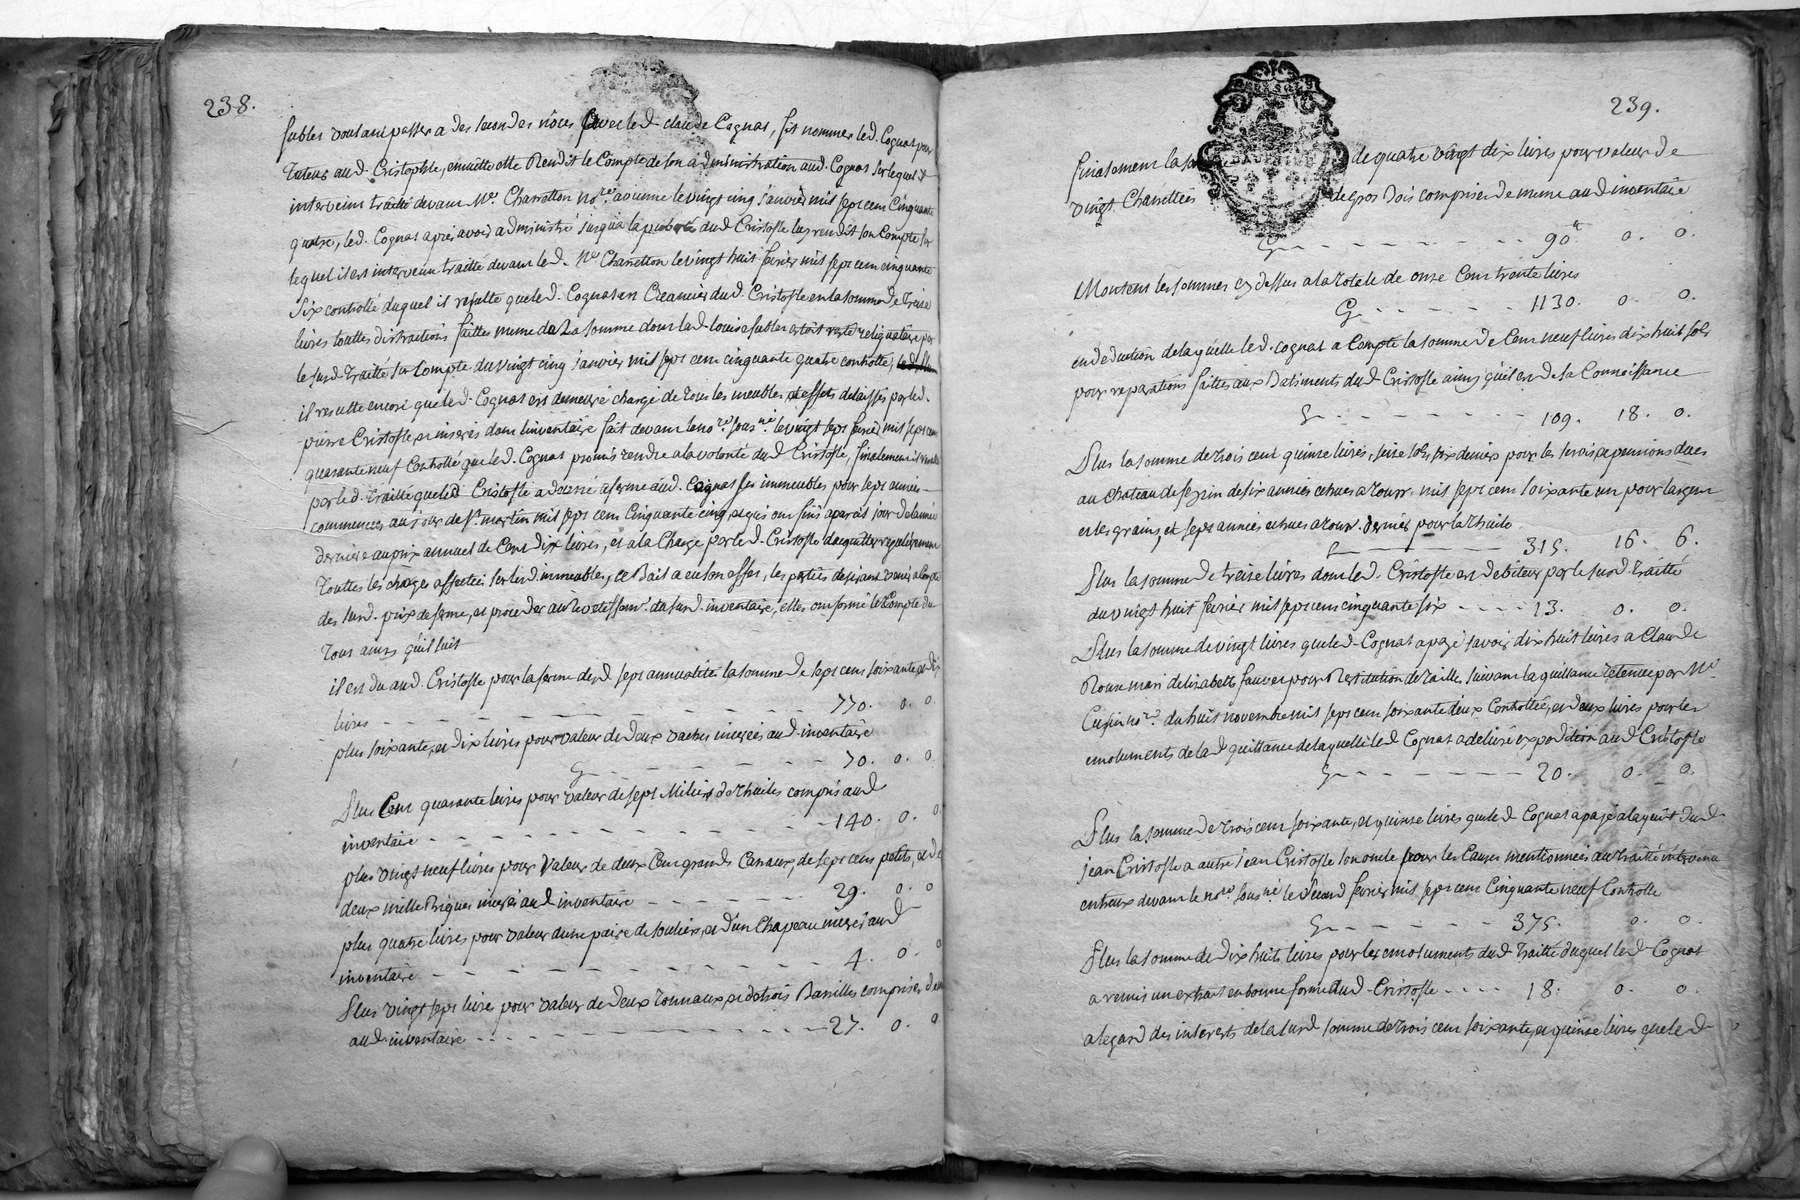 238.
fables voulant passer a des secondes nôces avec led claude Cognas, fit nommer led. Cognas pour
Tuteur aud. Cristophle, ensuitte elle Rendit le Compte de son administration aud. Cognas sur lequel il
intervint traitté devant Me. Charretton nore. avienne le vingt cinq janvier mil sept cent Cinquante
quatre, led. Cognas apres avoir administré jusqua la puberté dud Cristofle luy rendit son Compte sur
lequel il est intervenu traitté devant led. Me Charretton le vingt huit fevrier mil sept cent cinquante
Six controllé duquel il resulte que led. Cognas en Creancier dud. Cristofle en la somme de Treize
livres touttes distractions faittes meme de La somme dont lad. louise fables etoit restée reliquataire par
le susd. traitté sur Compte du vingt cinq janvier mil sept cent cinquante quatre controllé,
il resulte encore que led. Cognas est demeuré chargé de tous les meubles et effets delaissés par led.
pierre Cristofle et inserés dans linventaire fait devant le nore. sousné le vingt sept fevrier mil sept cent
quarante neuf Controllé que led. Cognas promis rendre a la volonté dud Cristofle, finalement il resulte
par led. traitté que led Cristofle a donné a ferme aud. Cognas ses immeubles pour sept années
commencées au jour de St. martin mil sept cent Cinquante cinq, et qui ont fini a pareil jour de lannée
derniere au prix annuel de Cent dix livres, et a la Charge par led. Cristofle dacquitter regulierement
touttes les charges affectées sur lesd. immeubles, ce Bail a eu son effet, les parties desirant venir a Compte
des susd. prix de ferme, et proceder au Devetissemt. dusud. inventaire, elles ont formé le Compte du
tout ainsy qu'il suit
il est du aud. Cristofle pour la ferme desd sept annualités la somme de sept cent soixante, et dix
livres - - - - - - - - 770. 0. 0
plus soixante, et dix livres pour valeur de deux vaches inserées aud. inventaire
Cy - - - - - - - 70. 0. 0
Plus Cent quarante livres pour valeur de sept Miliers de thuiles compris aud
inventaire - - - - - - - - - 140. 0. 0
plus vingt neuf livres pour valeur de deux Cent grands Canaux, de sept cent petits, et de
deux mille Briques inserés aud inventaire - - - - - 29. 0. 0
plus quatre livres pour valeur dune paire de souliers, et d'un Chapeau inserés aud
inventaire - - - - - - - - - 4. 0. 0
Plus vingt sept livre pour valeur de deux tonnaux et de trois Barrilles comprises de meme
aud. inventaire - - - - - - - - - 27. 0. 0
239.
finalement la somme de quatre vingt dix livres pour valeur de
vingt Charettées de gros Bois comprises de meme aud inventaire
Cy - - - - - - - - 90lt. 0. 0.
Montent les sommes cy dessus a la totale de onze Cent trente livres
Cy - - - - - - 1130. 0. 0.
en deduction de laquelle led. cognas a Compté la somme de Cent neuf livres dix huit sols
pour reparations faittes aux Batiments dud Cristofle ainsy quil en de sa Connoissance
Cy - - - - - - - - 109. 18. 0.
Plus la somme de trois cent quinze livres, seize sols, six deniers pour les servis, et pensions dues
au Chateau de sezin de six années echues a tous. mil sept cent soixante un pour largent
et les grains, et sept années echues a tous. dernier pour la thuile.
Cy - - - - - - 315. 16. 6.
Plus la somme de treize livres dont led. Cristofle est debiteur par le susd traitté
du vingt huit fevrier mil sept cent cinquante six - - - - 13. 0. 0.
Plus la somme de vingt livres que led. Cognas a payé savoir dix huit livres a Claude
Rouse mari delizabeth fauves pour Restitution de Taille, suivant la quittance retenue par Me.
Cusin nore. du huit novembre mil sept cent soixante deux Controllée, et deux livres pour les
emoluments de lad quittance de laquelle led Cognas a delivré expedition aud Cristofle
Cy - - - - - - - 20. 0. 0.
Plus la somme de trois cent soixante, et quinze livres que led Cognas a payé alaquit dud
jean Cristofle a autre jean Cristofle son oncle pour les Causes mentionnées au traitté intervenu
entreux devant le nore. sousné le second fevrier mil sept cent Cinquante neuf Controllé
Cy - - - - - - 375. 0. 0.
Plus la somme de dix huits livres pour les emoluments dud traitté duquel led. Cognas
a remis un extrait en bonne forme aud. Cristofle - - - - 18. 0. 0.
a legard des interests de la susd somme de trois cent soixante, et quinze livres que led